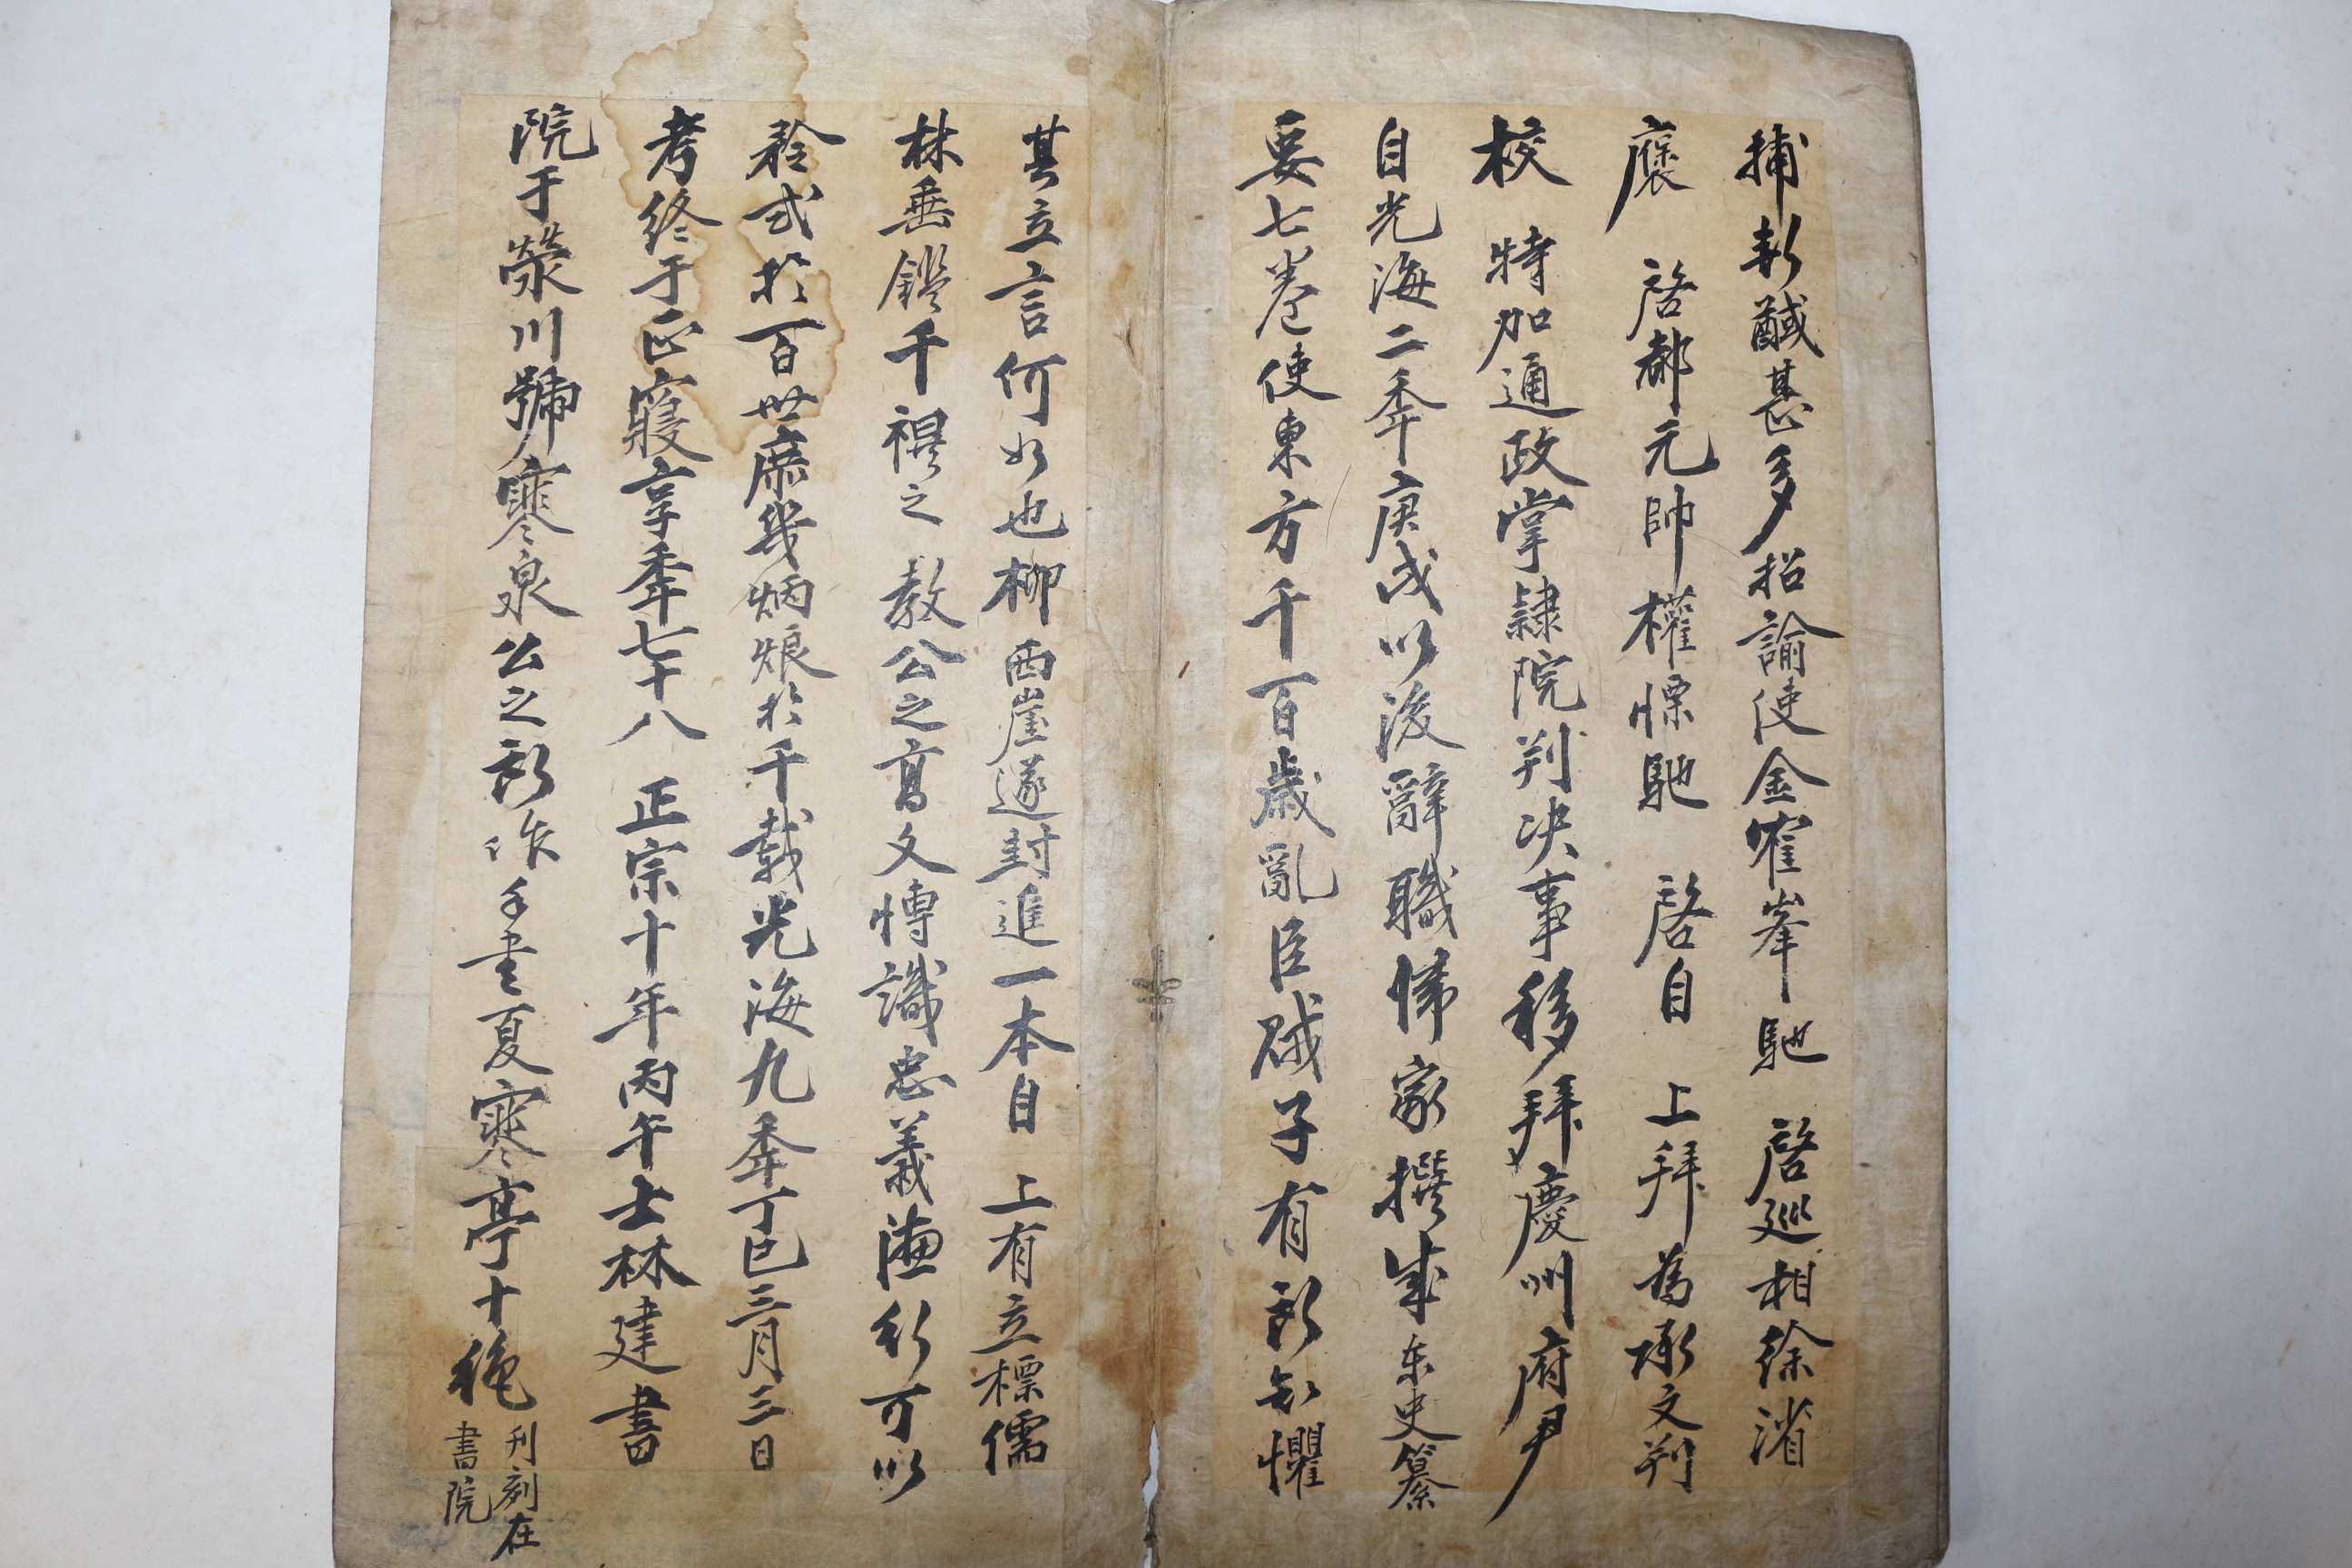 捕斬馘甚多招諭使金霍峯馳 啓巡相徐渻
褒 啓都元帥權慄馳 啓自 上拜爲承文判
校 特加通政掌隷院判决事移拜慶州府尹
自光海二秊庚戌以後辭職歸家撰成东史纂
要七卷使東方千百歲亂臣賊子有所知懼
其立言何如也柳西崖遂封進一本自 上有立標儒
林垂鑑千禩之 敎公之高文博識忠義德行可以
矜式於百世庶幾炳烺於千載光海九秊丁巳三月三日
考終于正寢享秊七十八 正宗十年丙午士林建書
院于滎川號寒泉公之所作手書夏寒亭十絶
刊刻在
書院